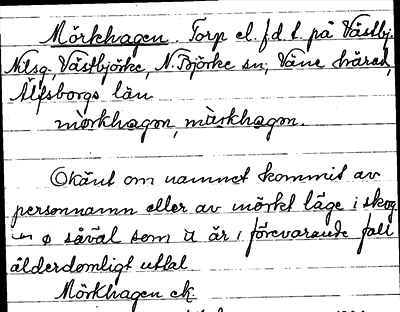 Mörkhagen. Torp el. f.d. t. på Västbj.
Nilsg, Västbjörke, N. Björke sn, Väne härad,
Älfsborgs län
mörkhagən, märkhagən.
Okänt om namnet kommit av
personnamn eller av mörkt läge i skog
ø såväl som a är i förevarande fall
ålderdomligt uttal
Mörkhagen ek.